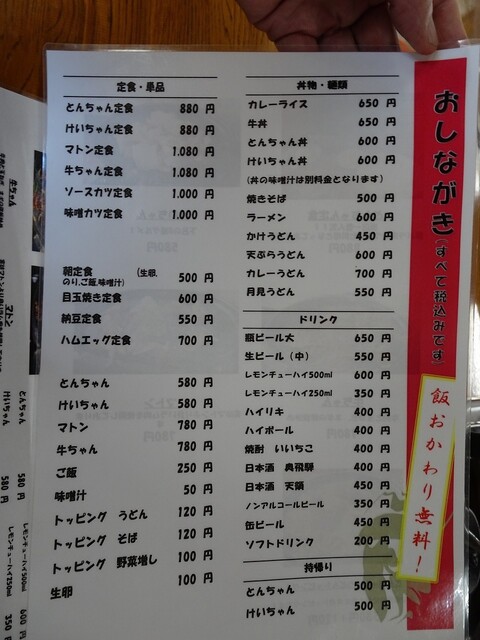 おしながき(すべて税込みです)
飯おかわり無料!
定食・単品
とんちゃん定食 880 円
けいちゃん定食 880 円
マトン定食 1.080 円
牛ちゃん定食 1.080 円
ソースカツ定食 1.000 円
味噌カツ定食 1.000 円
朝定食 (生卵,のり,ご飯,味噌汁) 500 円
目玉焼き定食 600 円
納豆定食 550 円
ハムエッグ定食 700 円
とんちゃん 580 円
けいちゃん 580 円
マトン 780 円
牛ちゃん 780 円
ご飯 250 円
味噌汁 50 円
トッピング うどん 120 円
トッピング そば 120 円
トッピング 野菜増し 100 円
生卵 100 円
丼物・麺類
カレーライス 650 円
牛丼 650 円
とんちゃん丼 600 円
けいちゃん丼 600 円
(丼の味噌汁は別料金となります)
焼きそば 500 円
ラーメン 600 円
かけうどん 450 円
天ぷらうどん 600 円
カレーうどん 700 円
月見うどん 550 円
ドリンク
瓶ビール大 650 円
生ビール(中) 550 円
レモンチューハイ500ml 600 円
レモンチューハイ250ml 350 円
ハイリキ 400 円
ハイボール 400 円
焼酎 いいちこ 400 円
日本酒 奥飛騨 400 円
日本酒 天領 450 円
ノンアルコールビール 350 円
缶ビール 450 円
ソフトドリンク 200 円
持帰り
とんちゃん 500 円
けいちゃん 500 円
牛ちゃん
マトン
とんちゃん 580 円
けいちゃん 580 円
レモンチューハイ500ml 600
レモンチューハイ250ml 350